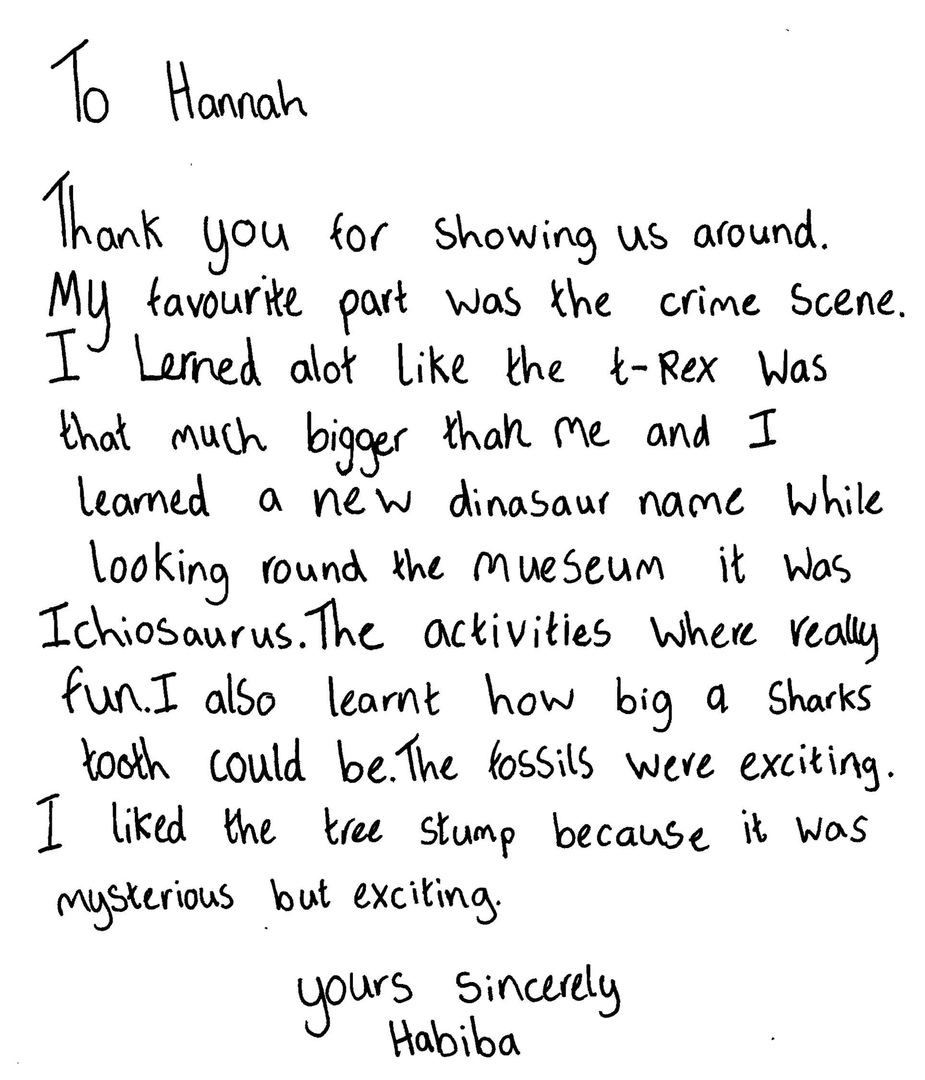 To Hannah
Thank you for showing us around.
My favourite part was the crime scene.
I Lerned alot like the t-Rex was
that much bigger than me and I
learned a new dinasaur name while
looking round the mueseum it was
Ichiosaurus.The activities where really
fun.I also learnt how big a sharks
tooth could be.The fossils were exciting.
I liked the tree stump because it was
mysterious but exciting.
yours sincerely
Habiba